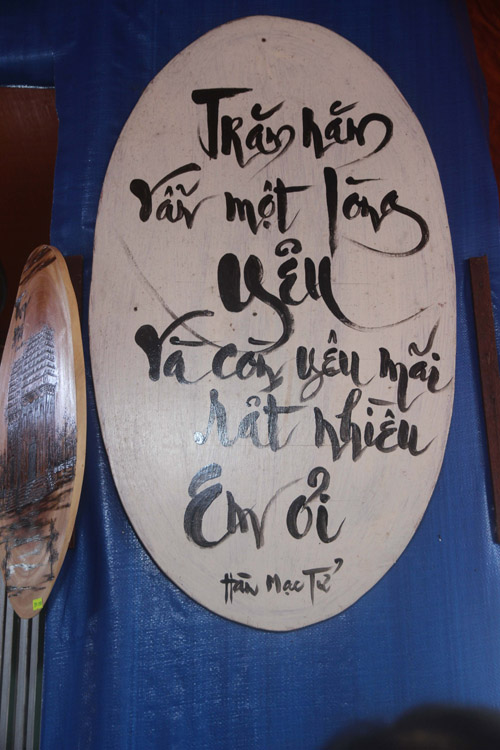 Trăm năm
Vẫn một lòng
yêu
Và còn yêu mãi
rất nhiều
Em ơi
Hàn Mạc Tử